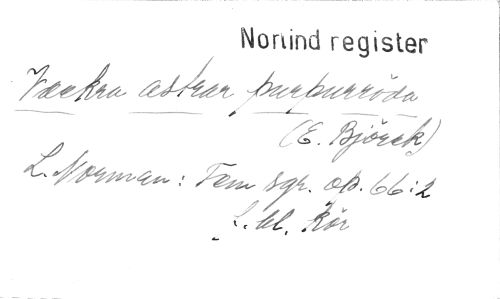 Norlind register
Vackra astrar, purpurröda
(E. Björck)
L. Norman: Fem sgr. op. 66:2
f. bl. kör